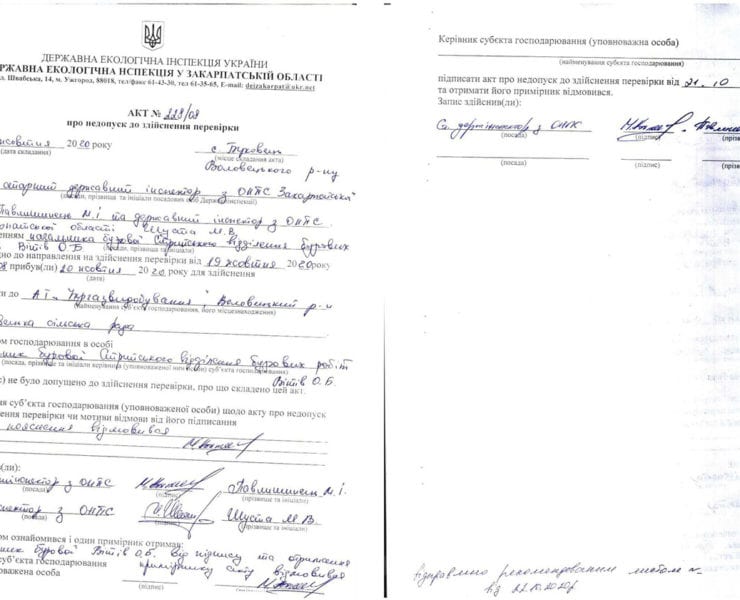 ДЕРЖАВНА ЕКОЛОГІЧНА ІНСПЕКЦІЯ УКРАЇНИ
РЖАВНА ЕКОЛОГІЧНА НСПЕКЦІЯ У ЗАКАРПАТСЬКІЙ ОБЛАСТІ
л. Швабська, 14, м. Ужгород, 88018, тел/факс 61-43-30, тел 61-35-65, E-mail: deizakarpat@ukr.net
АКТ № 228/08
про недопуск до здійснення перевірки
жовтня 2020 року с. Туховець
(дата складання) (місце складання акта)
Воловецького р-ну
старший державний інспектор з ОНПС Закарпатської
(посади, прізвища та ініціали посадових осіб Держекоінспекції)
Павлишинець М.І та державний інспектор з ОНПС
області Шуста М.В.
енням начальника бурової Стрийського відділення бурових
Вітів О.Б (посади, прізвища та ініціали)
дно до направлення на здійснення перевірки від 19 жовтня 2020року
08 прибув(ли) 20 жовтня 2020 року для здійснення
(дата)
ти до АТ "Укргазвидобування", Воловецький р-н
(найменування суб'єкта господарювання, його місцезнаходження)
сільська рада
ом господарювання в особі
ник бурової Стрийського відділення бурових робіт
(посада, прізвище та ініціали керівника (уповноваженої ним особи) суб'єкта господарювання)
Вітів О.Б.
) не було допущено до здійснення перевірки, про що складено цей акт.
ня суб'єкта господарювання (уповноваженої особи) щодо акту про недопуск
ення перевірки чи мотиви відмови від його підписання
пояснення відмовився
(ли):
інспектор з ОНПС Павлишинець М.І.
(посада) (підпис) (прізвище та ініціали)
спектор з ОНПС Шуста М.В.
(посада) (підпис) (прізвище та ініціали)
ом ознайомився і один примірник отримав:
ник бурової Вітів О.Б. від підпису та отримання
суб'єкта господарювання примірнику акту відмовився
оважена особа
(підпис)
Керівник субєкта господарювання (уповноважна особа)
(найменування субєкта господарювання)
підписати акт про недопуск до здійснення перевірки від 21.10
та отримати його примірник відмовився.
Запис здійснив(ли):
Ст. держінспектор з ОНПС
(посада) (підпис) (прізв
(посада) (підпис) (прізв
Відправлено рекомендованим листом
від 22.10.2020р